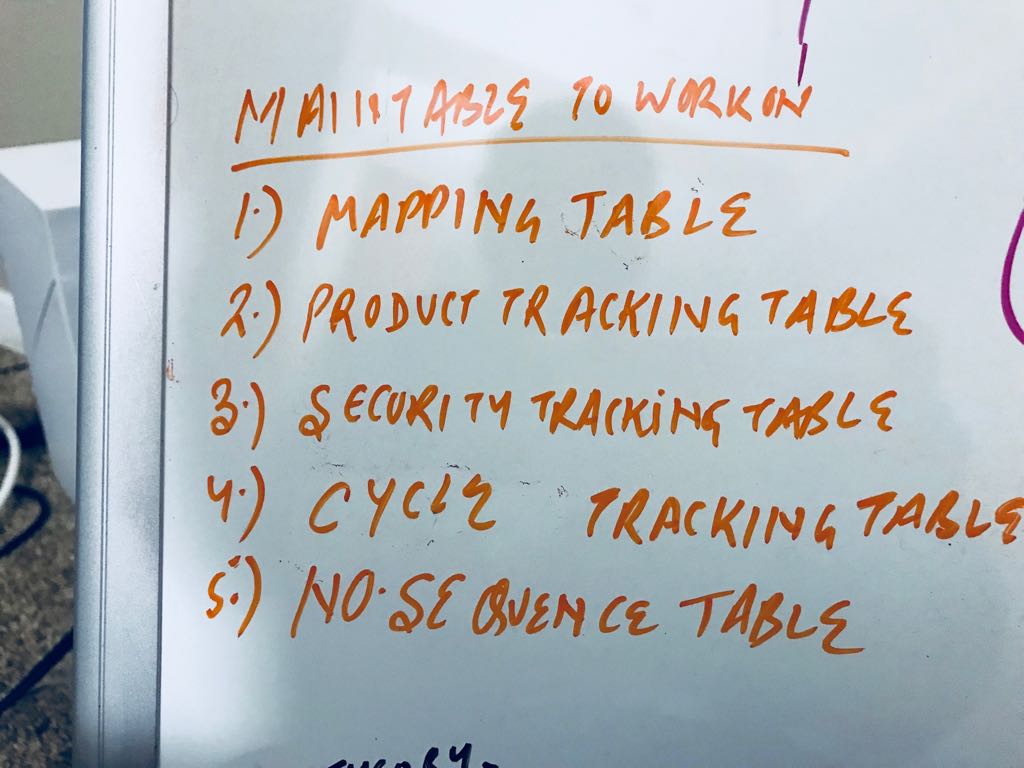 MAIN TABLE TO WORK ON
1.) MAPPING TABLE
2.) PRODUCT TRACKING TABLE
3.) SECURITY TRACKING TABLE
4.) CYCLE TRACKING TABLE
5.) NO. SEQUENCE TABLE